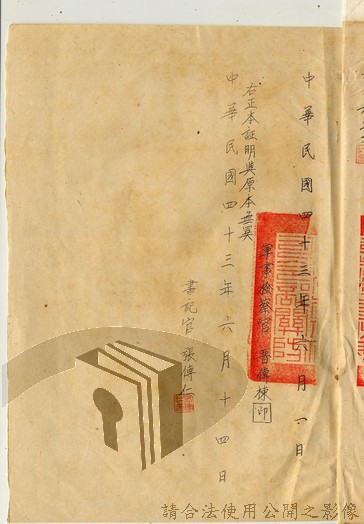 中華民國四十三年六月一日
軍事檢察官 曹偉棟 印
右正本証明與原本無異
中華民國四十三年六月十四日
書記官 張傳仁
請合法使用公開之影像